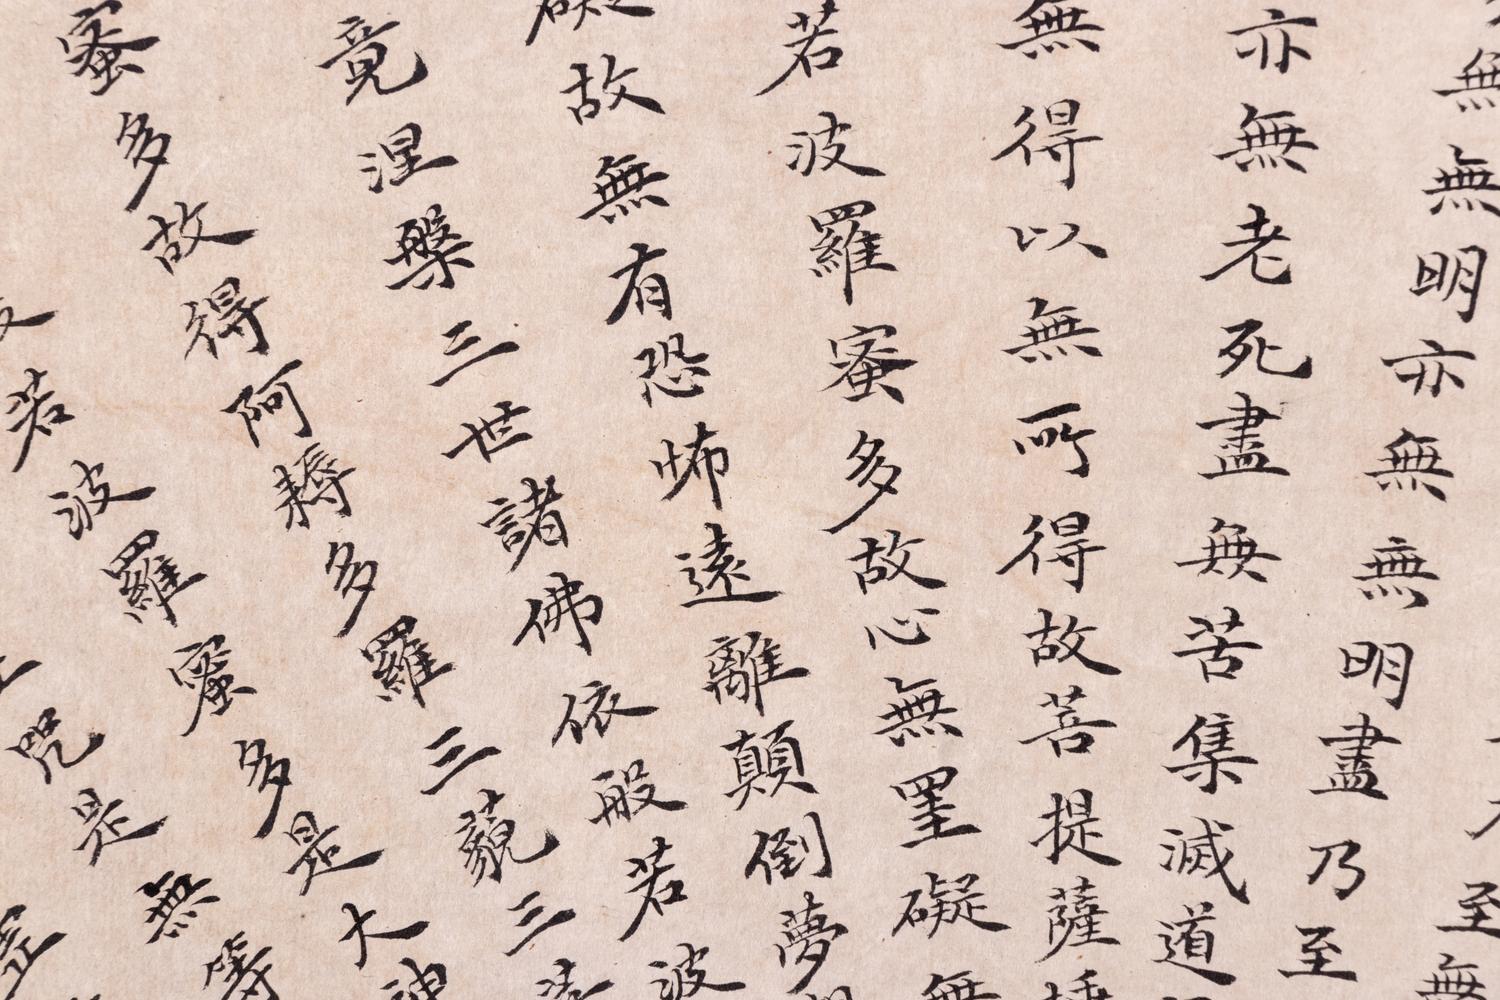 至無
無無明亦無無明盡乃至
亦無老死盡無苦集滅道
無得以無所得故菩提薩埵
若波羅蜜多故心無罣礙無
礙故無有恐怖遠離顛倒夢想
竟涅槃三世諸佛依般若波
蜜多故得阿耨多羅三藐三菩
若波羅蜜多是大神
咒是無等